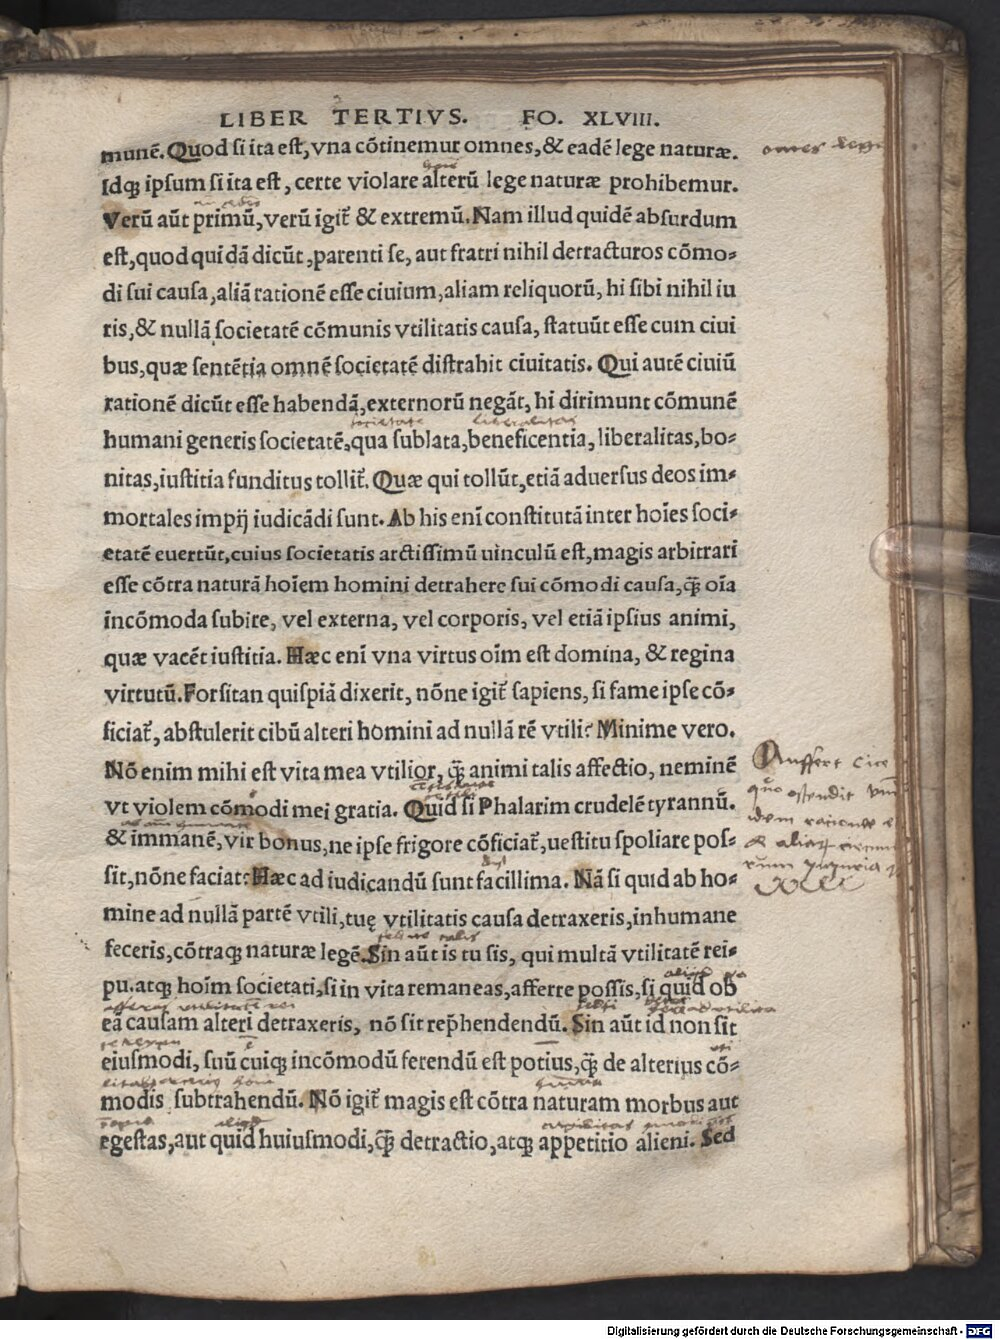 LIBER TERTIVS. FO. XLVIII.
munē. Quod si ita est, vna cōtinemur omnes, & eadē lege naturæ.
Idq; ipsum si ita est, certe violare alterū lege naturæ prohibemur.
Verū aūt primū, verū igit̃ & extremū. Nam illud quidē absurdum
est, quod quidā dicūt, parenti se, aut fratri nihil detracturos cōmo-
di sui causa, aliā rationē esse ciuium, aliam reliquorū, hi sibi nihil iu
ris, & nullā societatē cōmunis vtilitatis causa, statuūt esse cum ciui
bus, quæ sentētia omnē societatē distrahit ciuitatis. Qui autē ciuiū
rationē dicūt esse habendā, externorū negāt, hi dirimunt cōmunē
humani generis societatē, qua sublata, beneficentia, liberalitas, bo-
nitas, iustitia funditus tollit̃. Quæ qui tollūt, etiā aduersus deos im-
mortales impij iudicādi sunt. Ab his enī constitutā inter hoīes soci-
etatē euertūt, cuius societatis arctissimū uinculū est, magis arbitrari
esse cōtra naturā hoīem homini detrahere sui cōmodi causa, q̄ȝ oīa
incōmoda subire, vel externa, vel corporis, vel etiā ipsius animi,
quæ vacēt iustitia. Hæc enī vna virtus oīm est domina, & regina
virtutū. Forsitan quispiā dixerit, nōne igit̃ sapiens, si fame ipse cō-
ficiat̃, abstulerit cibū alteri homini ad nullā rē vtili? Minime vero.
Nō enim mihi est vita mea vtilior, q̄ȝ animi talis affectio, neminē
vt violem cōmodi mei gratia. Quid si Phalarim crudelē tyrannū.
& immanē, vir bonus, ne ipse frigore cōficiat̃, uestitu spoliare pos-
sit, nōne faciat? Hæc ad iudicandū sunt facillima. Nā si quid ab ho-
mine ad nullā partē vtili, tuę vtilitatis causa detraxeris, inhumane
feceris, cōtraq; naturæ legē. Sin aūt is tu sis, qui multā vtilitatē rei-
pu. atq; hoīm societati, si in vita remaneas, afferre possis, si quid ob
eā causam alteri detraxeris, nō sit rep̄hendendū. Sin aūt id non sit
eiusmodi, suū cuiq; incōmodū ferendū est potius, q̄ȝ de alterius cō-
modis subtrahendū. Nō igit̃ magis est cōtra naturam morbus aut
egestas, aut quid huiusmodi, q̄ȝ detractio, atq; appetitio alieni. Sed
Digitalisierung gefördert durch die Deutsche Forschungsgemeinschaft - DFG